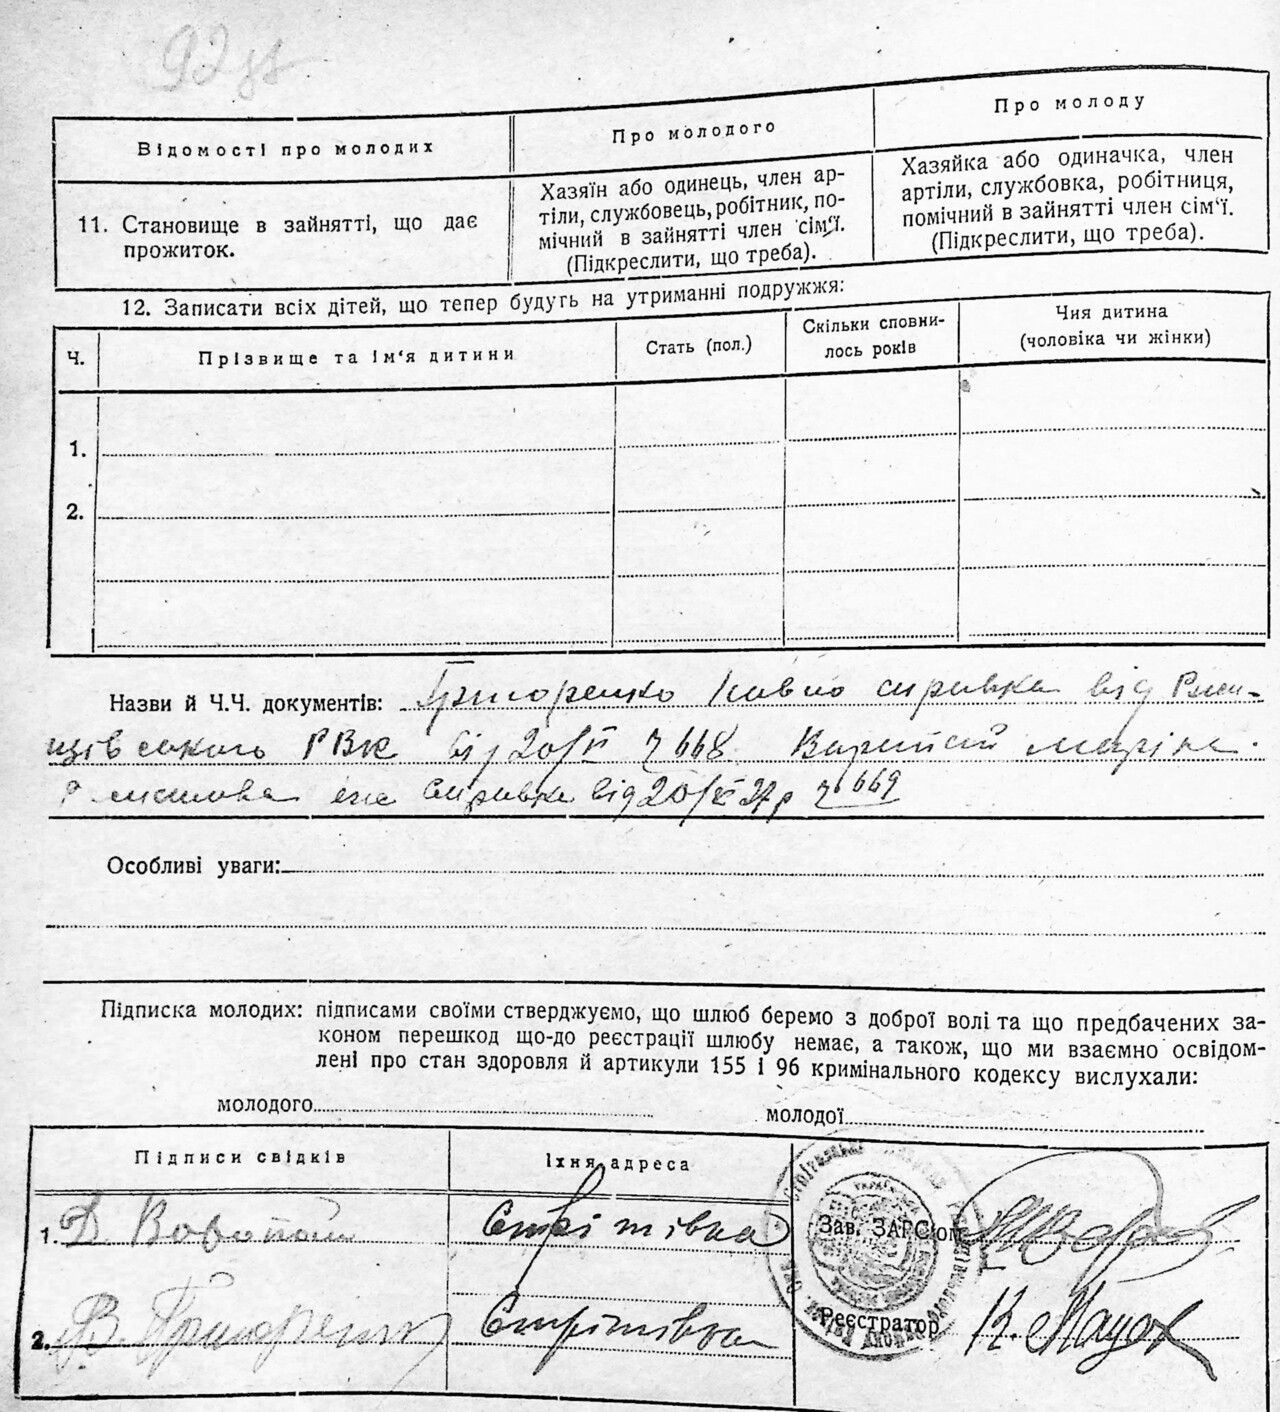 Відомості про молодих
Про молодого
Про молоду
11. Становище в зайнятті, що дає
прожиток.
Хазяїн або одинець, член ар-
тіли, службовець, робітник, по-
мічний в зайнятті член сім‘ї.
(Підкреслити, що треба).
Хазяйка або одиначка, член
артіли, службовка, робітниця,
помічний в зайнятті член сім‘ї.
(Підкреслити, що треба).
12. Записати всіх дітей, що тепер будуть на утриманні подружжя:
Ч.
Прізвище та ім‘я дитини
Стать (пол.)
Скільки сповни-
лось років
Чия дитина
(чоловіка чи жінки)
1.
2.
Назви й Ч.Ч. документів: Григоренко справка від Ржи-
щівського РВК від 20/ 668
справка від 20/ 669
Особливі уваги:
Підписка молодих: підписами своїми стверджуємо, що шлюб беремо з доброї волі та що предбачених за-
коном перешкод що-до реєстрації шлюбу немає, а також, що ми взаємно освідом-
лені про стан здоровля й артикули 155 і 96 кримінального кодексу вислухали:
молодого
молодої
Підписи свідків
Їхня адреса
1. Д. Воропай
Стрітівка
Зав. ЗАГС‘ом
2. В. Григоренко
Стрітівка
Реєстратор